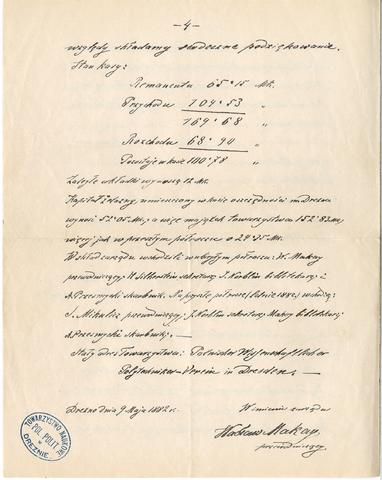 — 4 —
względy składamy serdeczne podziękowanie.
Stan kasy:
Remanentu 65·15 Mk.
Przychodu 104·53 "
169·68 "
Rozchodu 68·90 "
Pozostaje w kasie 100·78 "
Zaległe wkładki wynoszą 12 Mk.
Kapitał żelazny, umieszczony w kasie oszczędności m. Drezna
wynosi 52·05 Mk.; a więc majątek Towarzystwa 152·83 Mk.,
więcej jak w przeszłym półroczu o 24·75 Mk.
W skład zarządu wchodzili w ubiegłym półroczu: W. Makay
przewodniczący; sekretarz; bibliotekarz i
A. Przesmycki skarbnik. Na przyszłe półrocze (letnie 1882) wchodzą:
J. Mikulicz przewodniczący; sekretarz; Makay bibliotekarz;
A. Przesmycki skarbnik. —
Stały adres Towarzystwa: Polnischer Wissenschaftlicher
Polytechniker-Verein in Dresden. —
Drezno dnia 9 Maja 1882 r.
W imieniu zarządu
Wacław Makay
przewodniczący.
TOWARZYSTWO NAUKOWE
POL. POLIT.
W
DREZNIE